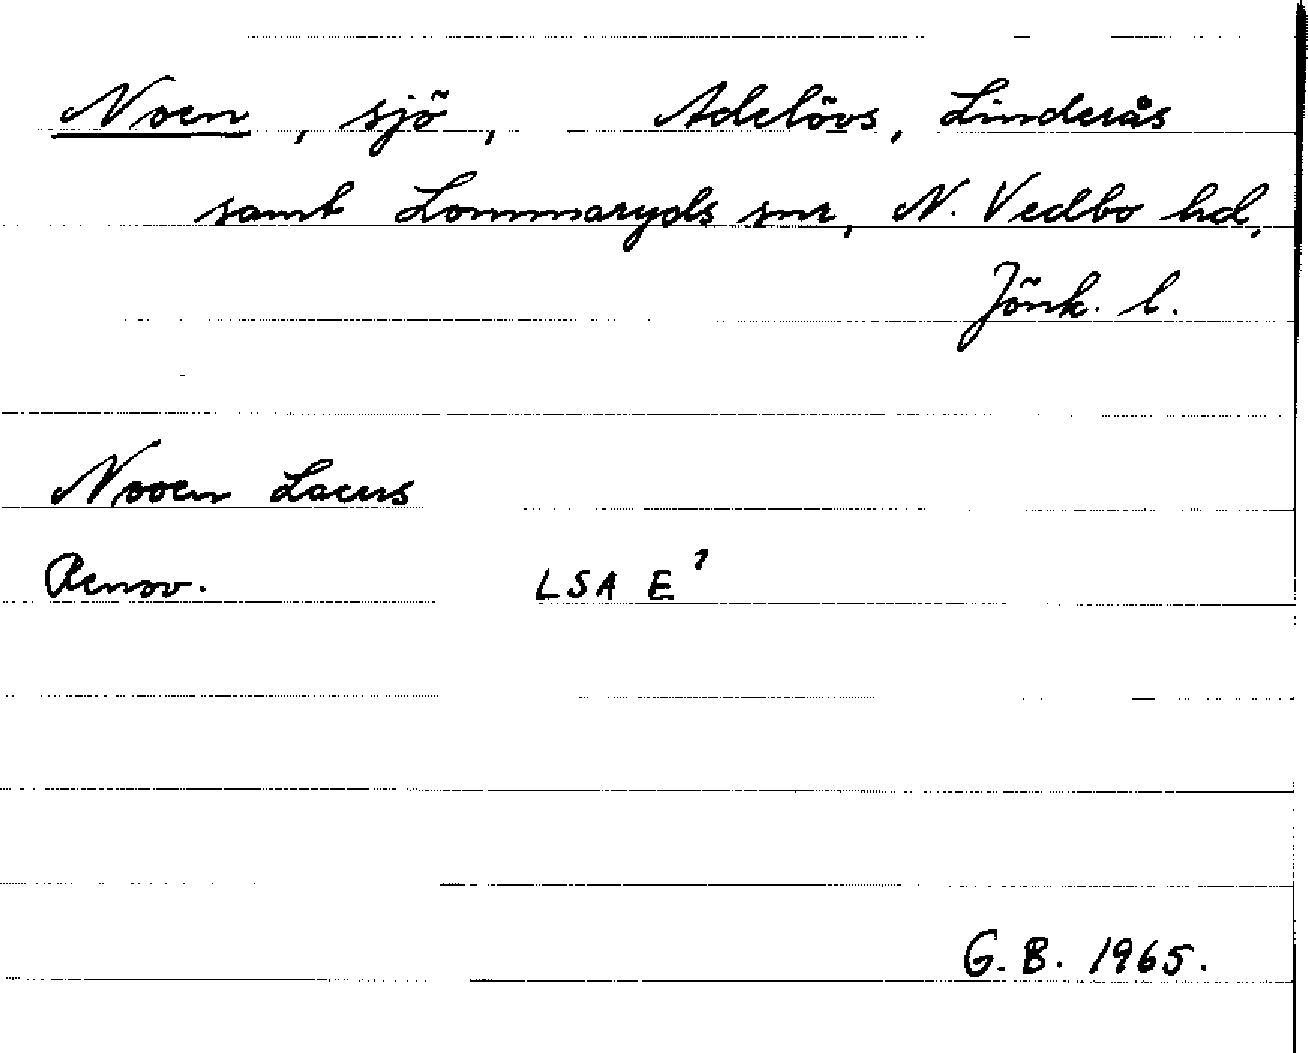 Noen, sjö, Adelövs, Linderås
samt Lommaryds snr, N. Vedbo hd,
Jönk. l.
Nooen Lacus
Renov. LSA E⁷
G. B. 1965.